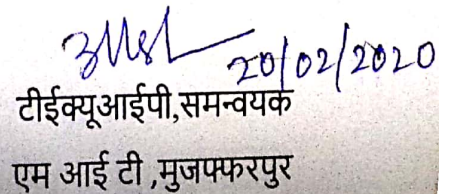 20/02/2020
टीईक्यूआईपी,समन्वयक
एम आई टी ,मुजफ्फरपुर